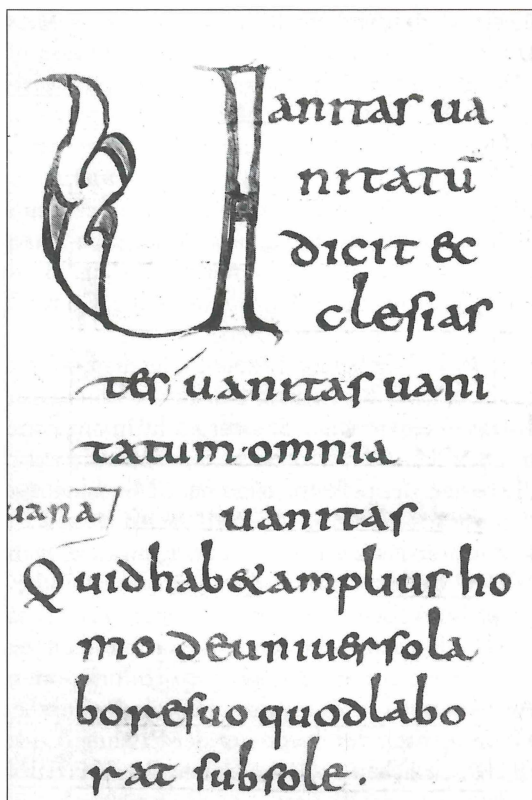 Uanitas ua
nitatū
dicit &c
clesias
tes uanitas uani
tatum omnia
uana uanitas
Quid hab& amplius ho
mo de uniuerso la
bore suo quod labo
rat sub sole